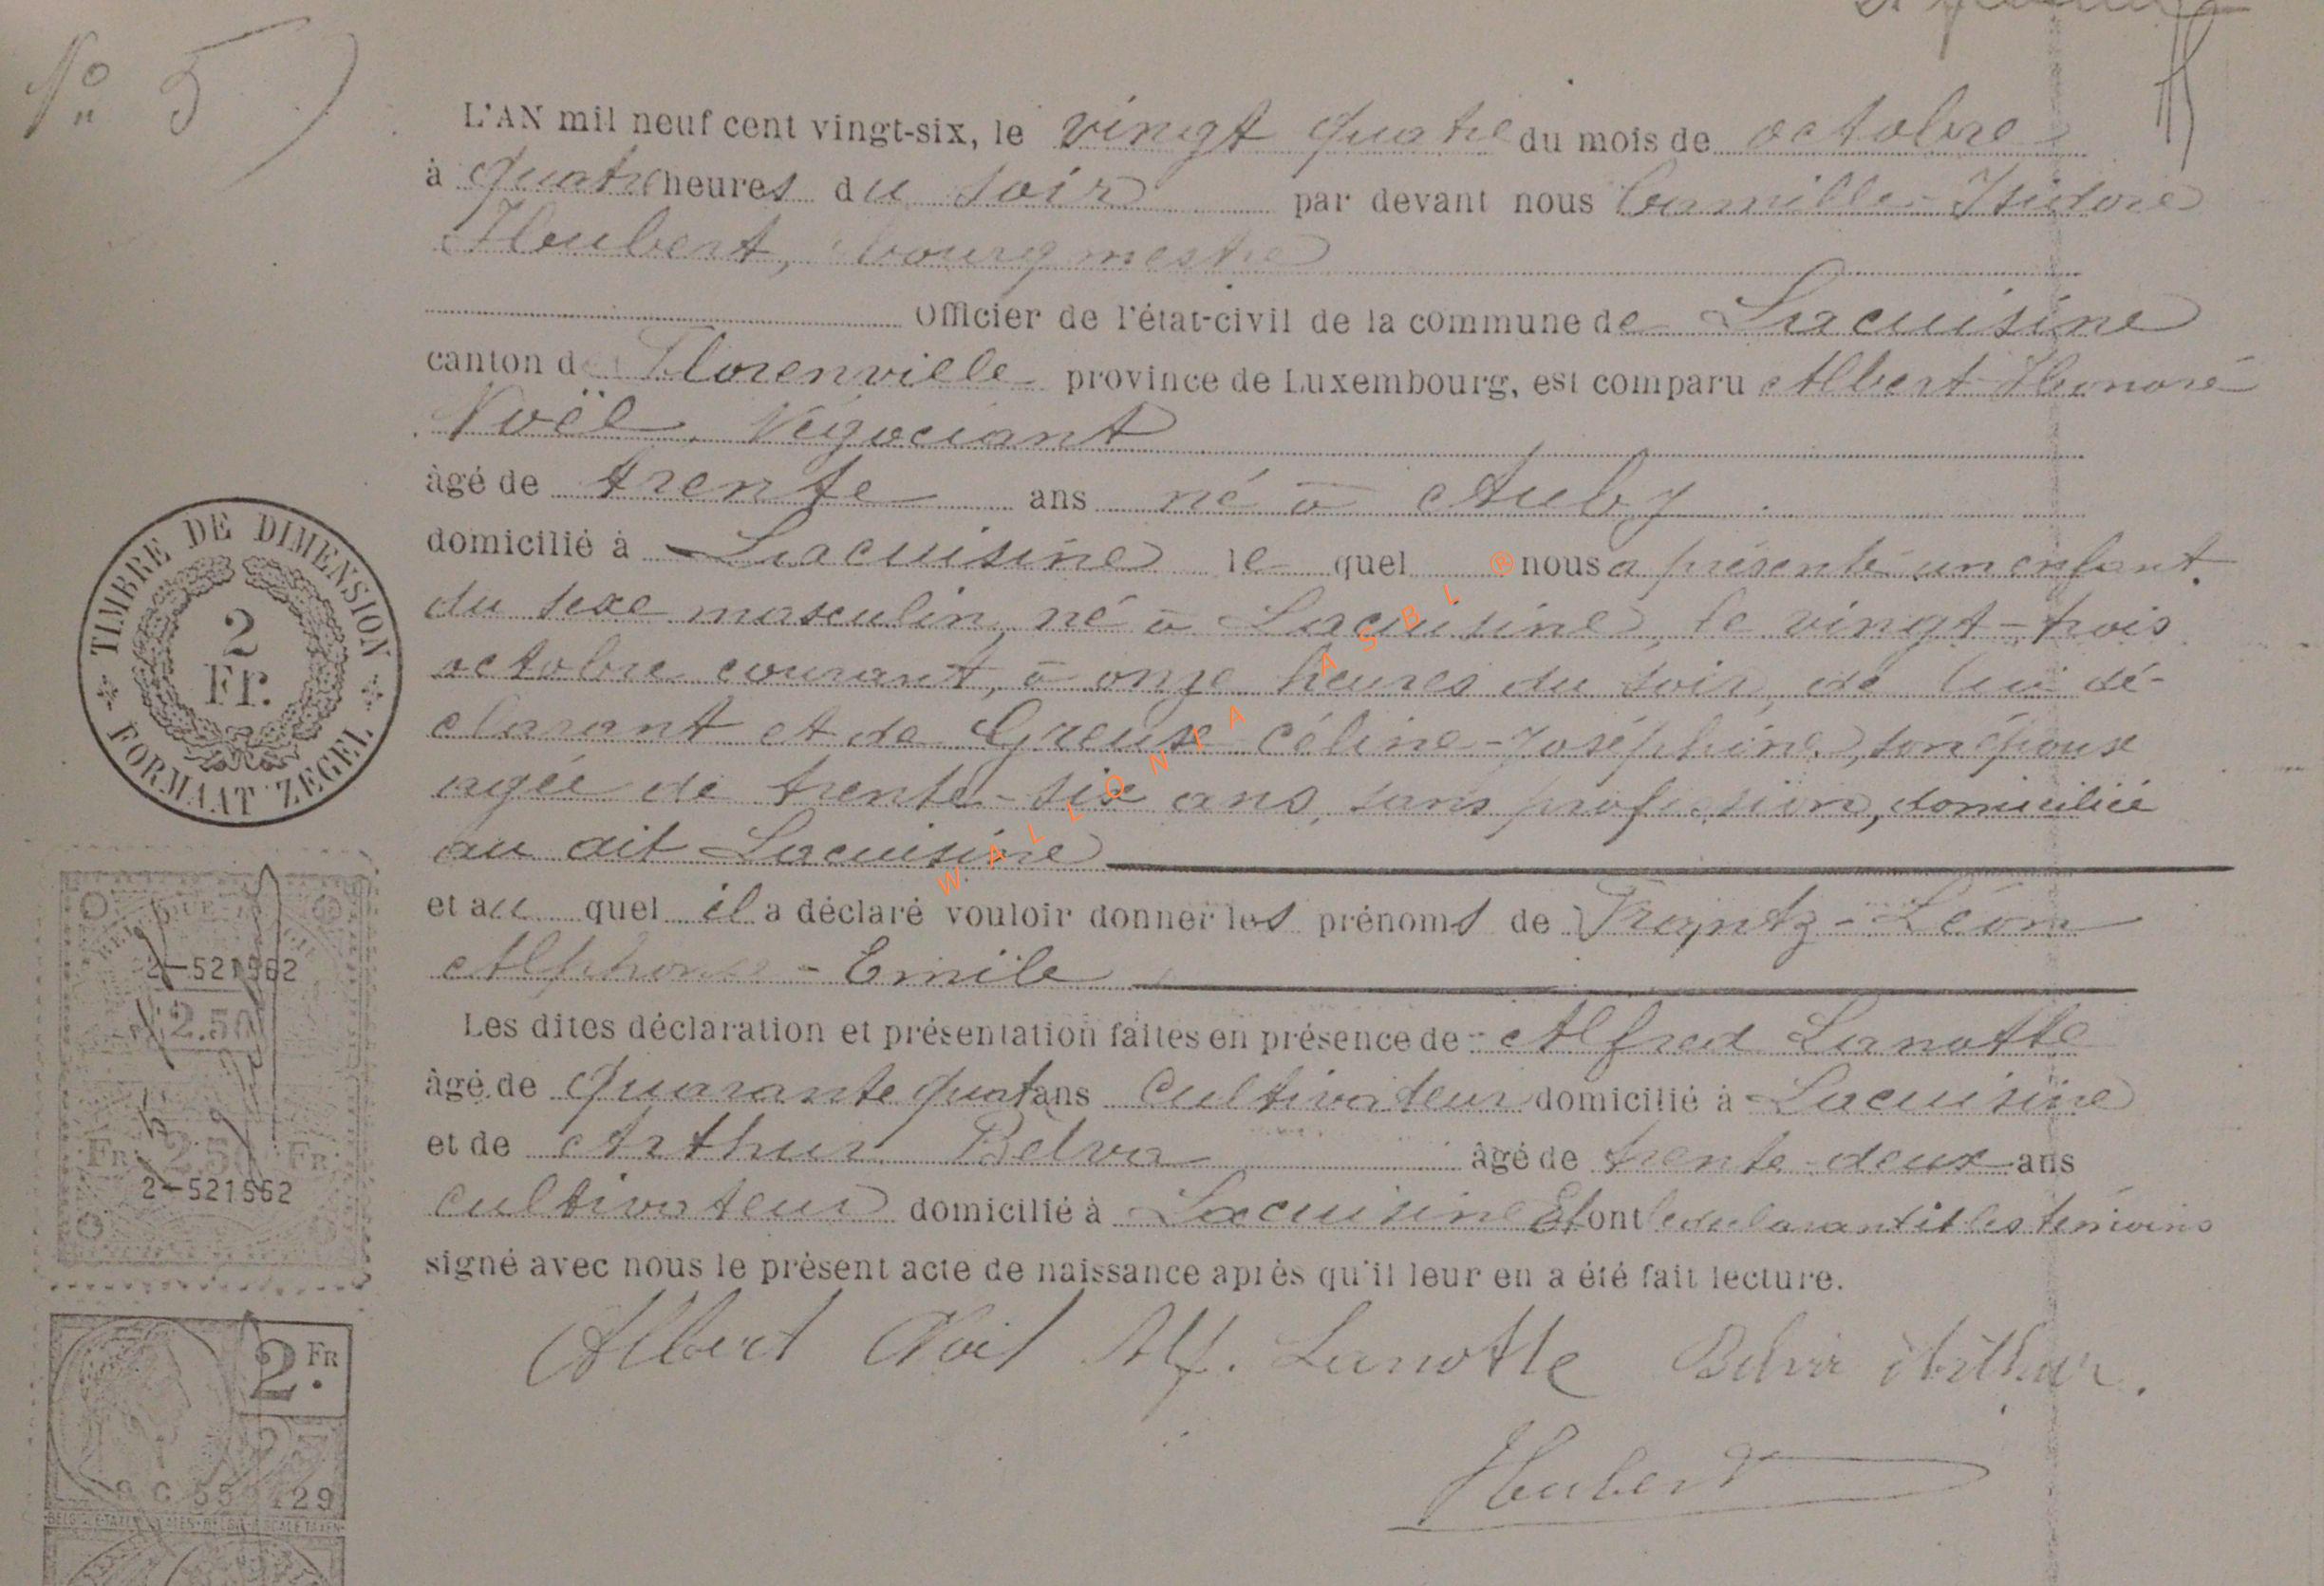 N° 5
L'AN mil neuf cent vingt-six, le vingt quatre du mois de octobre
à quatre heures du soir par devant nous Camille-Isidore
Hubert, bourgmestre
Officier de l'état-civil de la commune de Lacuisine
canton de Florenville province de Luxembourg, est comparu Albert Honoré
Noël, Négociant
âgé de trente ans né à Auby
domicilié à Lacuisine le quel nous a présenté un enfant
du sexe masculin, né à Lacuisine, le vingt-trois
octobre courant, à onze heures du soir, de lui dé-
clarant et de Greuse Céline-Joséphine, son épouse
agée de trente-six ans, sans profession, domiciliée
au dit Lacuisine
et au quel il a déclaré vouloir donner les prénoms de Frantz-Léon
Alphonse-Emile
Les dites déclaration et présentation faites en présence de Alfred Lanotte
âgé de quarante quat ans cultivateur domicilié à Lacuisine
et de Arthur Belva âgé de trente-deux ans
cultivateur domicilié à Lacuisine Et ont le déclarant et les témoins
signé avec nous le présent acte de naissance après qu'il leur en a été fait lecture.
Albert Noël Alf. Lanotte Belva Arthur.
Hubert
TIMBRE DE DIMENSION
2
Fr.
FORMAAT ZEGEL
2.50
Fr 2.50 Fr
2-521562
2 FR
WALLONIA ASBL ®